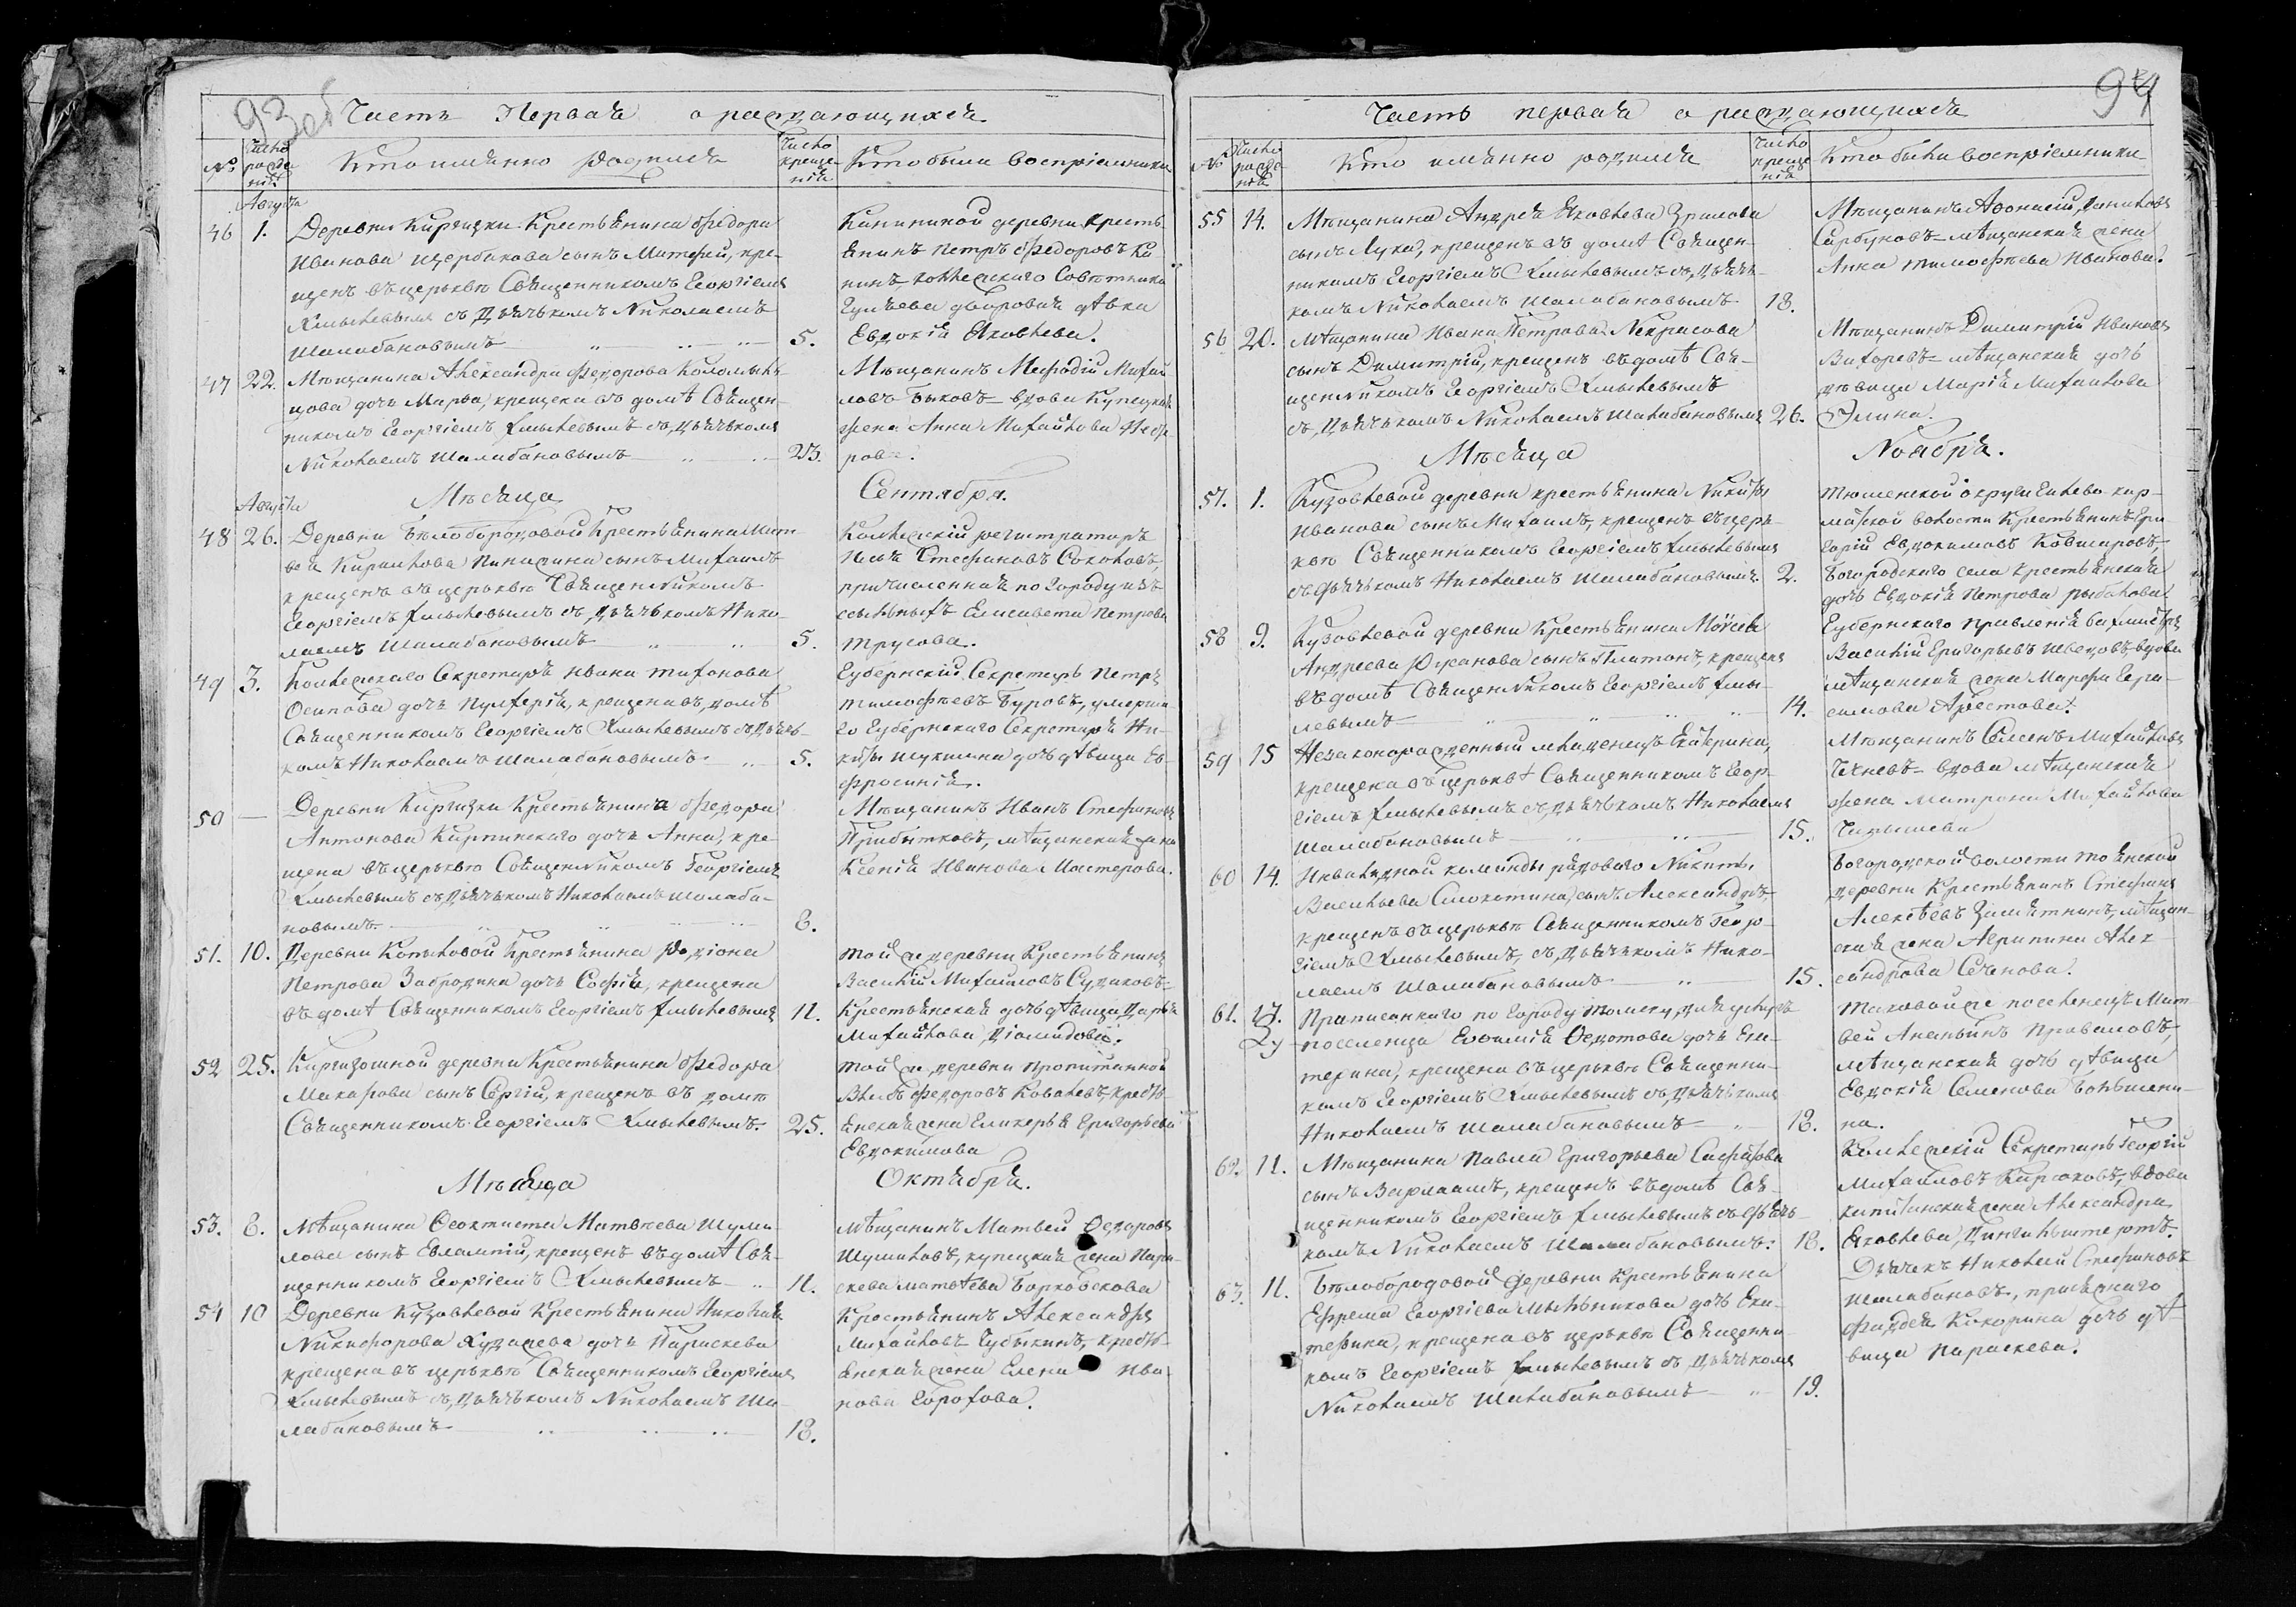 93 об
Часть Первая о раждающихся
№
Число рожденія
Кто имянно родился
Число крещенія
Кто были воспріемники
Августа
46 1. Деревни Киргизки Крестьянина Ѳедора
Иванова Щербакова сынъ Матфей, кре-
щенъ въ церькве Священникомъ Георгіемъ
Хмылевымъ съ Дьячькомъ Николаемъ
Шалабановымъ 5.
Крестьянинъ Петръ Ѳедоровъ
Совѣтника
дворовая дѣвка
Евдокія Яковлева.
47 22. Мѣщанина Александра Федорова Коломыль-
цова дочь Марья, крещена въ домѣ Священ-
никомъ Георгіемъ Хмылевымъ съ Дьячькомъ
Николаемъ Шалабановымъ 23.
Мѣщанинъ Мефодій Михай-
ловъ Быковъ – вдова Купецкая
жена Анна Михайлова
Мѣсяца Сентября.
Августа
48 26. Деревни Бѣлобородовой Крестьянина Мат-
вея Кирилова сынъ Михаилъ
крещенъ въ церькве Священникомъ
Георгіемъ Хмылевымъ съ Дьячькомъ Нико-
лаемъ Шалабановымъ 5.
Коллежскій регистраторъ
Стефановъ Соколовъ,
причисленная по городу изъ
ссыльныхъ Елисавета Петрова
Трусова.
49 3. Коллежскаго Секретаря Ивана Тихонова
Осипова дочь Пулхерія, крещена въ домѣ
Священникомъ Георгіемъ Хмылевымъ съ Дьячь-
комъ Николаемъ Шалабановымъ 5.
Губернскій Секретарь Петръ
Тимофѣевъ Буровъ, умерша-
го Губернскаго Секретаря Ни-
киты Шукшина дочь дѣвица Ев-
фросинія.
50 — Деревни Киргизки Крестьянина Ѳедора
Антонова Киргинскаго дочь Анна, кре-
щена въ церькве Священникомъ Георгіемъ
Хмылевымъ съ Дьячькомъ Николаемъ Шалаба-
новымъ 8.
Мѣщанинъ Иванъ Стефановъ
Прибытковъ, мѣщанская жена
Ксенія Иванова Шестерова.
51. 10. Деревни Копыловой Крестьянина Родіона
Петрова Забродина дочь Софія, крещена
въ домѣ Священникомъ Георгіемъ Хмылевымъ 11.
Той же деревни Крестьянинъ
Василій Михайловъ Судаковъ –
Крестьянская дочь дѣвица Дарья
Михайлова Діомидова.
52 25. Киргизошной деревни Крестьянина Ѳедора
Макарова сынъ Сергій, крещенъ въ домѣ
Священникомъ Георгіемъ Хмылевымъ. 25.
Той же деревни пропитанной
Федоровъ Ковалевъ, кресть-
янская жена Гликерья Григорьева
Евдокимова
Мѣсяца Октября.
53. 8. Мѣщанина Феоктиста Матвѣева Шуми-
лова сынъ Евлампій, крещенъ въ домѣ Свя-
щенникомъ Георгіемъ Хмылевымъ 11.
Мѣщанинъ Матвей Ѳедоровъ
Шумиловъ, купецкая жена Пара-
скева Матвѣева Барковскова
54 10 Деревни Кузовлевой Крестьянина Николая
Никифорова Худашева дочь Параскева
крещена въ церькве Священникомъ Георгіемъ
Хмылевымъ съ Дьячькомъ Николаемъ Ша-
лабановымъ 18.
Крестьянинъ Александръ
Михайловъ Губыкинъ, кресть-
янская жена Елена Ива-
нова Ерофова.
94
Часть первая о раждающихся
№
Число рожденія
Кто имянно родился
Число крещенія
Кто были воспріемники
55 14. Мѣщанина Андрея Яковлева Ермолова
сынъ Лука, крещенъ въ домѣ Священ-
никомъ Георгіемъ Хмылевымъ съ Дьячь-
комъ Николаемъ Шалабановымъ 18.
Мѣщанинъ Афонасій Даниловъ
Сарбуновъ – мѣщанская жена
Анна Тимофѣева Иванова.
56 20. Мѣщанина Ивана Петрова Некрасова
сынъ Димитрій, крещенъ въ домѣ Свя-
щенникомъ Георгіемъ Хмылевымъ
съ Дьячькомъ Николаемъ Шалабановымъ 26.
Мѣщанинъ Димитрій Ивановъ
Вихоревъ – мѣщанская дочь
дѣвица Марія Михайлова
Элина.
Мѣсяца Ноября.
57. 1. Кузовлевой деревни крестьянина Никиты
Иванова сынъ Михаилъ, крещенъ въ церь-
кве Священникомъ Георгіемъ Хмылевымъ
съ дьячькомъ Николаемъ Шалабановымъ. 2.
Тюменской округи
волости Крестьянинъ Гри-
горій Евдокимовъ Ковшаровъ,
Богородскаго села крестьянская
дочь Евдокія Петрова Рыбалова.
58 9. Кузовлевой деревни Крестьянина Моисея
Андреева Рузанова сынъ Платонъ, крещенъ
въ домѣ Священникомъ Георгіемъ Хмы-
левымъ 14.
Губернскаго Правленія вахмистръ
Василій Григорьевъ Шведовъ, вдова
мѣщанская жена Марфа Гера-
симова Арестова.
59 15 Незаконорожденный младенецъ Екатерина,
крещена въ церькве Священникомъ Геор-
гіемъ Хмылевымъ съ Дьячькомъ Николаемъ
Шалабановымъ 15.
Мѣщанинъ Семенъ Михайловъ
Чехневъ – вдова мѣщанская
жена Матрона Михайлова
Чадышева
60 14. Инвалидной команды рядоваго Никиты
Васильева Смокотина сынъ Александръ,
крещенъ въ церькве Священникомъ Геор-
гіемъ Хмылевымъ, съ Дьячькомъ Нико-
лаемъ Шалабановымъ 15.
Богородской волости Тоянской
деревни Крестьянинъ Стефанъ
Алексѣевъ Замятнинъ, мѣщан-
ская жена Агрипина Алек-
сандрова Сеченова.
61. 17. Приписаннаго по городу Томску
поселенца Евфимія Ѳедотова дочь Ека-
терина, крещена въ церькве Священни-
комъ Георгіемъ Хмылевымъ съ Дьячькомъ
Николаемъ Шалабановымъ 18.
Таковой же поселенецъ Мат-
вей Ананьинъ Проваловъ,
мѣщанская дочь дѣвица
Евдокія Семенова Большени-
на.
62. 11. Мѣщанина Павла Григорьева Сафонова
сынъ Варлаамъ, крещенъ въ домѣ Свя-
щенникомъ Георгіемъ Хмылевымъ съ Дьячь-
комъ Николаемъ Шалабановымъ. 18.
Коллежскій Секретарь Георгій
Михайловъ Кирсановъ, вдова
капитанская жена Александра
Яковлева Дингильштетъ.
63. 11. Бѣлобородовой деревни Крестьянина
Ефрема Георгіева Мыльникова дочь Ека-
терина, крещена въ церькве Священни-
комъ Георгіемъ Хмылевымъ съ Дьячькомъ
Николаемъ Шалабановымъ 19.
Дьячекъ Николай Стефановъ
Шалабановъ, присяжнаго
Фаддея Кокорина дочь дѣ-
вица Параскева.